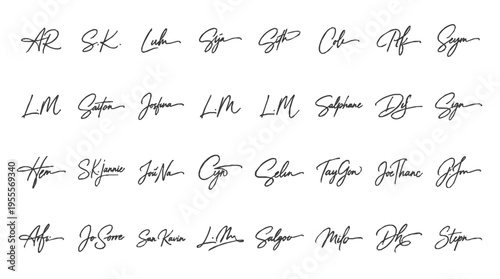 AR S.K. Luh Sija Sith Cole Pifs Seym
L.M Saiton Josfuna L.M L.M Salphane Dis Sign
Hem SKjannie JouNa Cyn Selin TayGow JoeThanc
Arfs JoSorre SanKavin L.Mm Salgoo Milo Dh Stepn
Adobe Stock | #1955569340